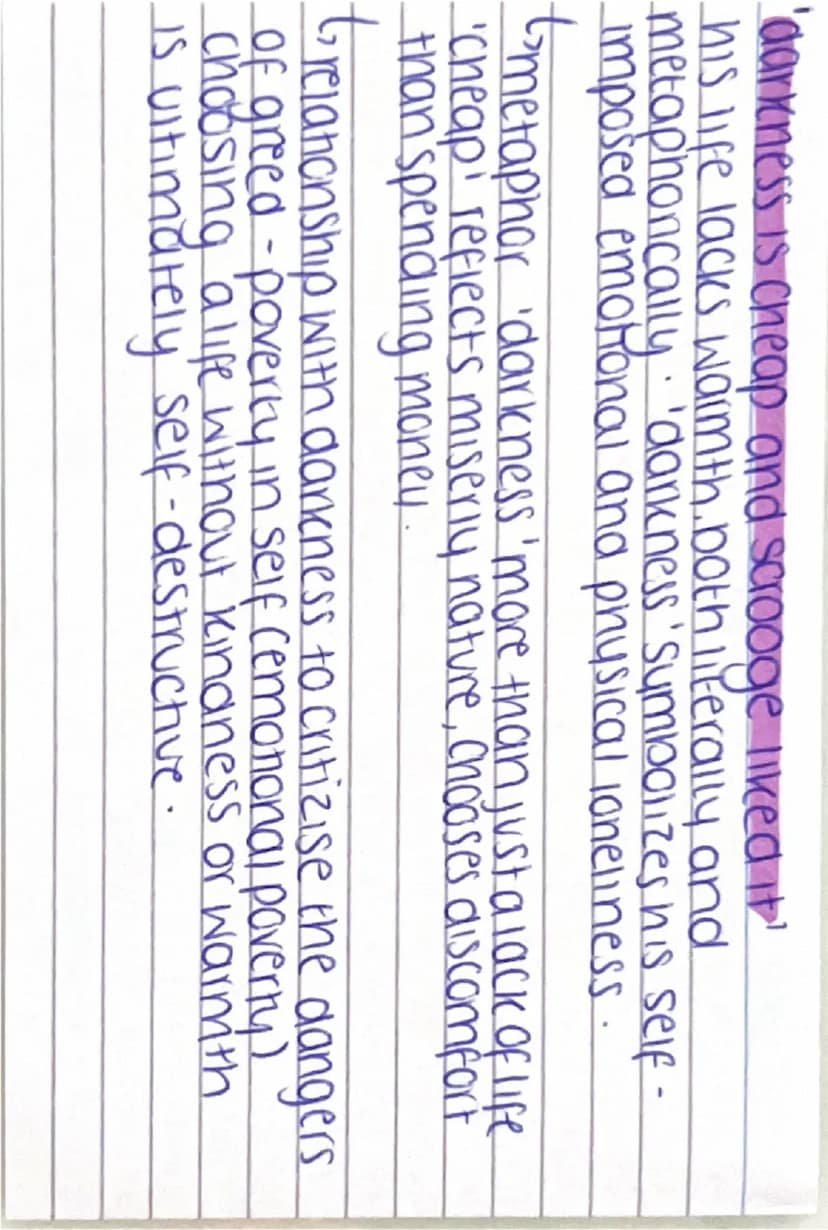 'darkness is cheap and scrooge liked it'
his life lacks warmth, both literally and
metaphorically. 'darkness' symbolizes his self-
imposed emotional and physical loneliness.
↳ metaphor 'darkness' more than just a lack of life
'cheap' reflects miserly nature, chooses discomfort
than spending money.
↳ relationship with darkness to critizise the dangers
of greed - poverty in self (emotional poverty)
choosing a life without kindness or warmth
is ultimately self-destructive.